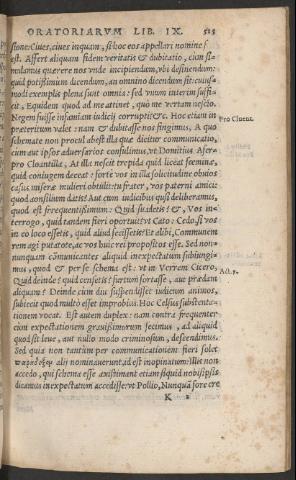 ORATORIARVM LIB. IX. 515
sione. Ciues, ciues inquam, si hoc eos appellari nomine f
est. Affert aliquam fidem veritatis & dubitatio, cùm si-
mulamus quærere nos vnde incipiendum, vbi desinendum:
quid potissimùm dicendum, an omnino dicendum sit: cuius-
modi exemplis plena sunt omnia: sed vnum interim suffi-
cit, Equidem quod ad me attinet, quò me vertam nescio.
Negem fuisse infamiam iudicij corrupti &c. Hoc etiam in
præteritum valet: nam & dubitasse nos fingimus. A quo
schemate non procul abest illa quæ dicitur communicatio,
cùm aut ipsos aduersarios consulimus, vt Domitius Afer
pro Cloantilla, At illa nescit trepida quid liceat fœminæ,
quid coniugem deceat: fortè vos in illa solicitudine obuios
casus miseræ mulieri obtulit: tu frater, vos paterni amici:
quod consilium datis? Aut cum iudicibus quasi deliberamus,
quod est frequentissimum: Quid suadetis? &, Vos in-
terrogo, quid tandem fieri oportuit? vt Cato: Cedo si vos
in eo loco essetis, quid aliud fecissetis? Et alibi, Communem
rem agi putatote, ac vos huic rei propositos esse. Sed non-
nunquam communicantes aliquid inexpectatum subiungi-
mus, quod & per se schema est: vt in Verrem Cicero,
Quid deinde? quid censetis? furtum fortasse, aut prædam
aliquam? Deinde cùm diu suspendisset iudicum animos,
subiecit quod multò esset improbius. Hoc Celsus sustenta-
tionem vocat. Est autem duplex: nam contrà frequenter
cùm expectationem grauissimorum fecimus, ad aliquid
quod sit leue, aut nullo modo criminosum, descendimus.
Sed quia non tantùm per communicationem fieri solet
alij nominauerunt, id est inopinatum: Illis non
accedo, qui schema esse existimant etiam si quid nobis ipsis
dicamus inexpectatum accidisse: vt Pollio, Nunquã fore cre
K
Pro Cluent.
Act. 7.